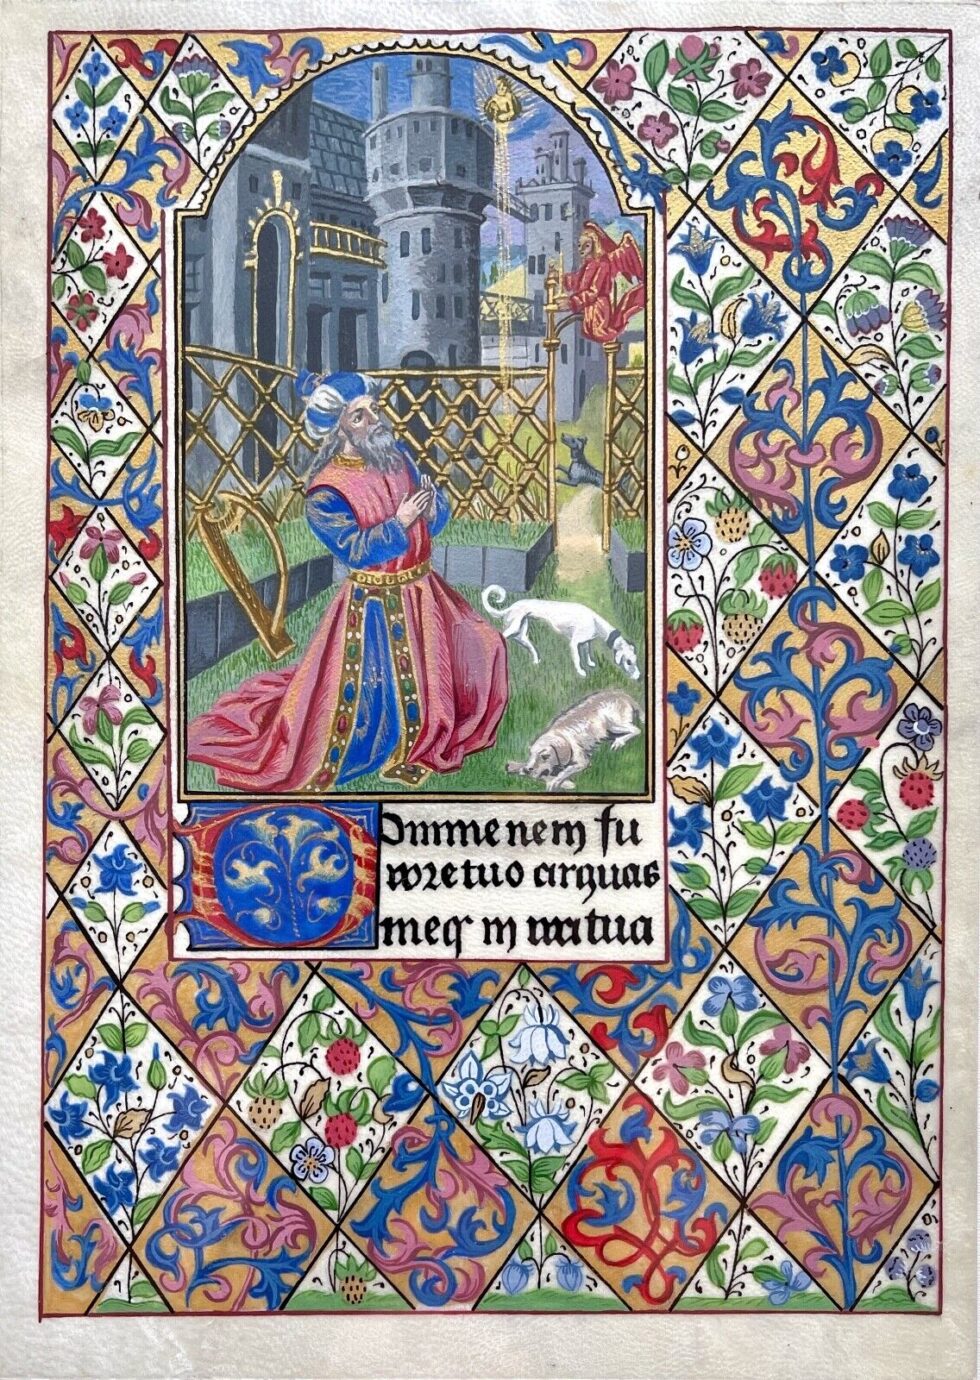 DOmine ne in fu
rore tuo arguas
meq in ira tua